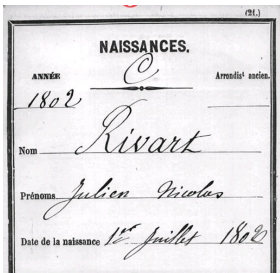 (21.)
NAISSANCES.
C
ANNÉE Arrondist ancien.
1802
Rivart
Nom
Prénoms Julien Nicolas
Date de la naissance 1er Juillet 1802